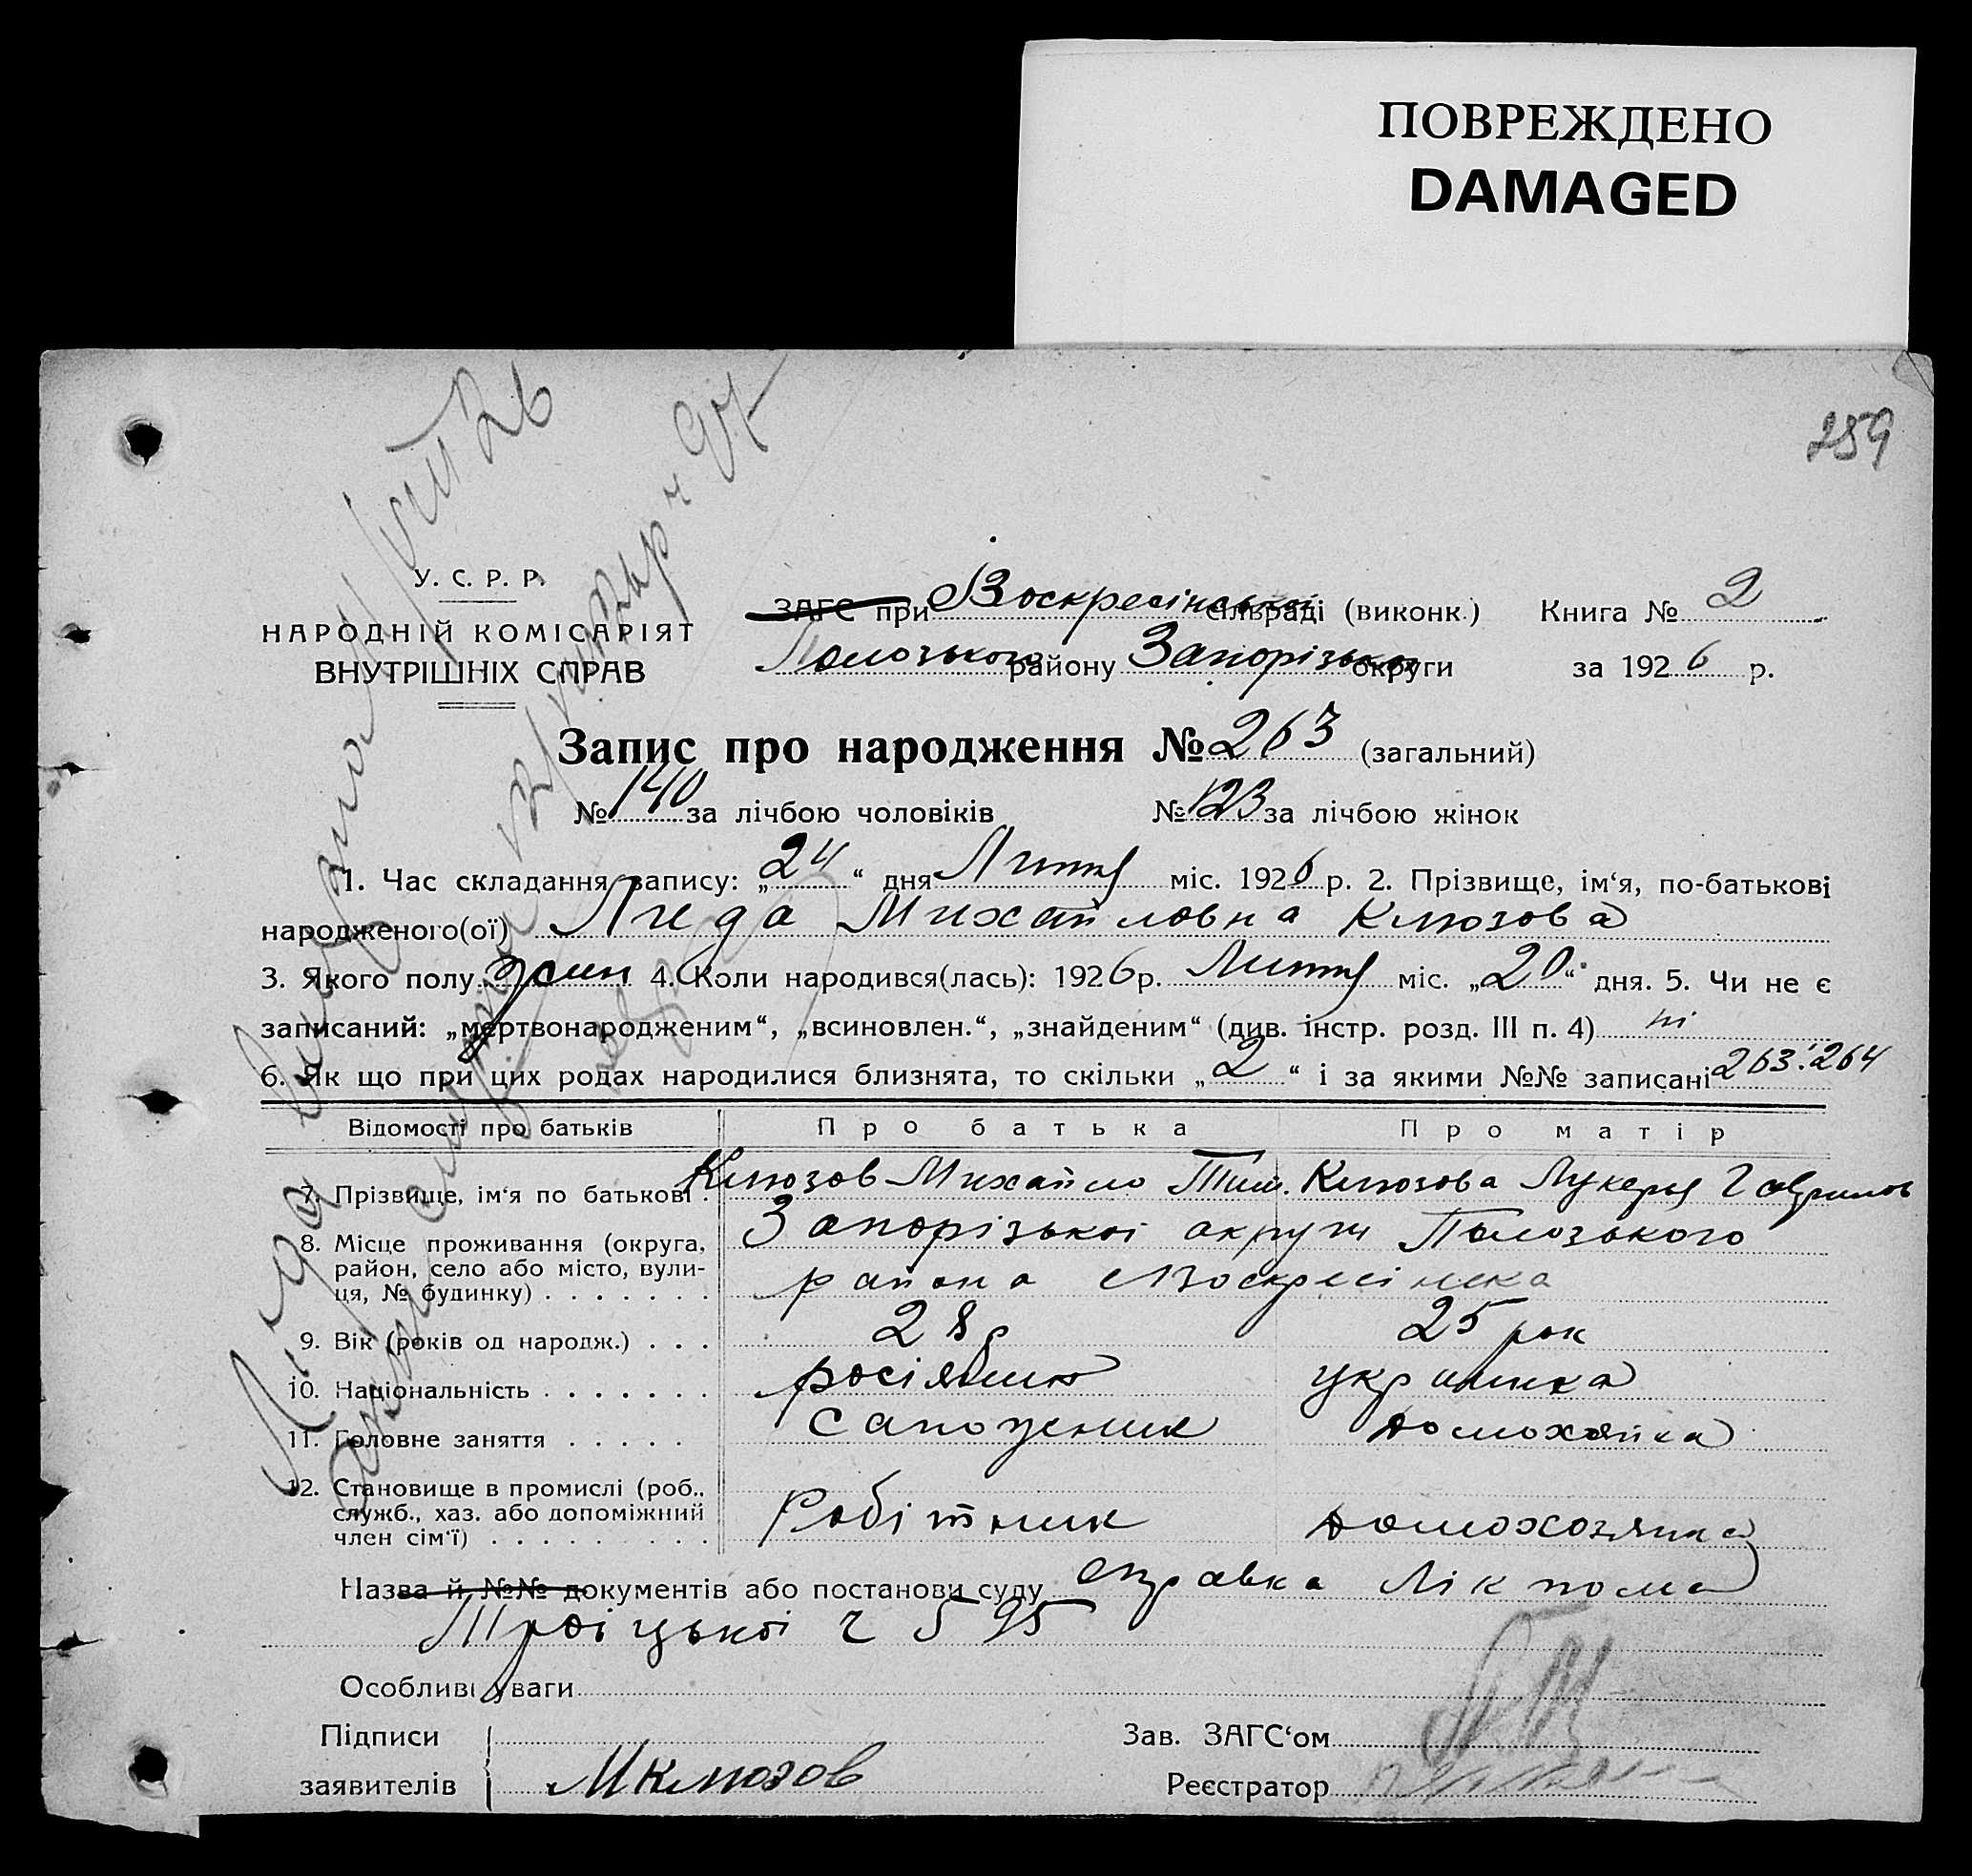 ПОВРЕЖДЕНО
DAMAGED
259
У. С. Р. Р.
НАРОДНІЙ КОМІСАРІЯТ
ВНУТРІШНІХ СПРАВ
ЗАГС при Воскресінській сільраді (виконк.) Книга № 2
Пологського району Запорізької округи за 1926 р.
Запис про народження № 263 (загальний)
№ 140 за лічбою чоловіків № 123 за лічбою жінок
1. Час складання запису: „24“ дня Лютня міс. 1926 р. 2. Прізвище, ім‘я, по-батькові
народженого(ої) Ліда Михайловна Клюзова
3. Якого полу жін 4. Коли народився(лась): 1926 р. Лютня міс. „20“ дня. 5. Чи не є
записаний: „мертвонародженим“, „всиновлен.“, „знайденим“ (див. інстр. розд. III п. 4) ні
6. Як що при цих родах народилися близнята, то скільки „2“ і за якими №№ записані 263:264
Відомості про батьків Про батька Про матір
7. Прізвище, ім‘я по батькові . Клюзов Михайло Тим. Клюзова Лукеря Гаврилов
8. Місце проживання (округа, район, село або місто, вулиця, № будинку) . . . . . . . Запорізької округи Пологзького
района Воскресінска
9. Вік (років од народж.) . . . 28 р 25 рок
10. Національність . . . . . . . росіянин українка
11. Головне заняття . . . . . сапожник домохазяйка
12. Становище в промислі (роб., служб., хаз. або допоміжний член сім‘ї) . . . . . . . . . Робітник домохозяйка
Назва й №№ документів або постанови суду справка Лікпома
Троіцької ч 595
Особливі уваги
Підписи Зав. ЗАГС‘ом
заявителів МКлюзов Реєстратор